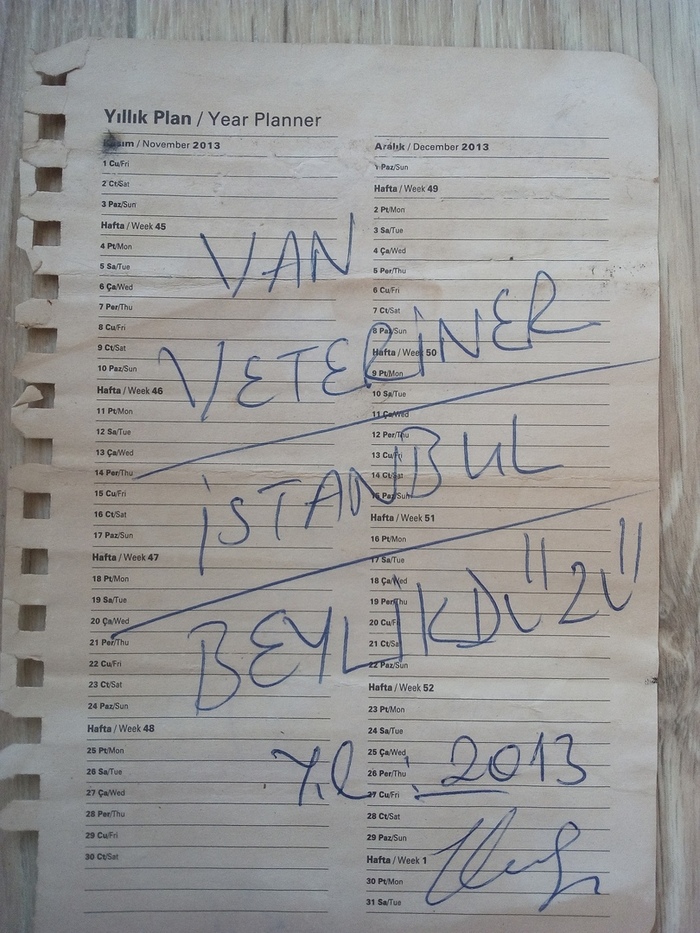 Yıllık Plan / Year Planner
Kasım / November 2013
1 Cu/Fri
2 Ct/Sat
3 Paz/Sun
Hafta / Week 45
4 Pt/Mon
5 Sa/Tue
6 Ça/Wed
7 Per/Thu
8 Cu/Fri
9 Ct/Sat
10 Paz/Sun
Hafta / Week 46
11 Pt/Mon
12 Sa/Tue
13 Ça/Wed
14 Per/Thu
15 Cu/Fri
16 Ct/Sat
17 Paz/Sun
Hafta / Week 47
18 Pt/Mon
19 Sa/Tue
20 Ça/Wed
21 Per/Thu
22 Cu/Fri
23 Ct/Sat
24 Paz/Sun
Hafta / Week 48
25 Pt/Mon
26 Sa/Tue
27 Ça/Wed
28 Per/Thu
29 Cu/Fri
30 Ct/Sat
Aralık / December 2013
1 Paz/Sun
Hafta / Week 49
2 Pt/Mon
3 Sa/Tue
4 Ça/Wed
5 Per/Thu
6 Cu/Fri
7 Ct/Sat
8 Paz/Sun
Hafta / Week 50
9 Pt/Mon
10 Sa/Tue
11 Ça/Wed
12 Per/Thu
13 Cu/Fri
14 Ct/Sat
15 Paz/Sun
Hafta / Week 51
16 Pt/Mon
17 Sa/Tue
18 Ça/Wed
19 Per/Thu
20 Cu/Fri
21 Ct/Sat
22 Paz/Sun
Hafta / Week 52
23 Pt/Mon
24 Sa/Tue
25 Ça/Wed
26 Per/Thu
27 Cu/Fri
28 Ct/Sat
29 Paz/Sun
Hafta / Week 1
30 Pt/Mon
31 Sa/Tue
VAN
VETERİNER
İSTANBUL
BEYLİKDÜZÜ
Yıl : 2013